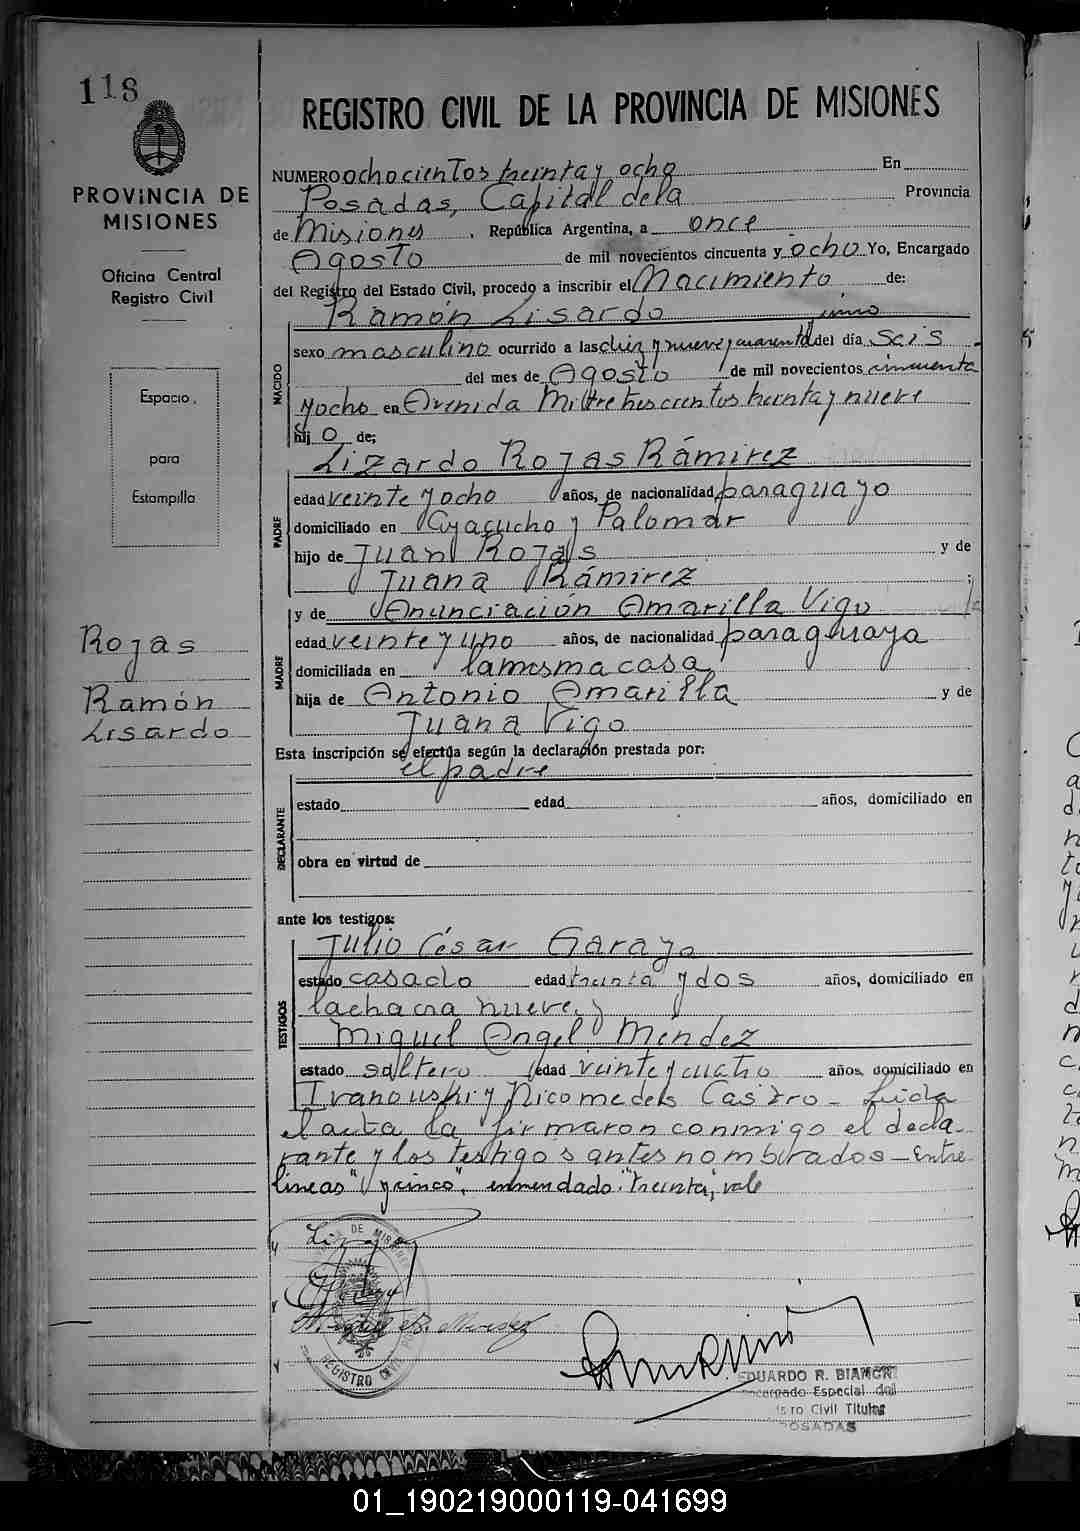 118
PROVINCIA DE
MISIONES
Oficina Central
Registro Civil
Espacio
para
Estampilla
Rojas
Ramón
Lisardo
REGISTRO CIVIL DE LA PROVINCIA DE MISIONES
NUMERO ochocientos treinta y ocho En
Posadas, Capital de la Provincia
de Misiones, República Argentina, a once
Agosto de mil novecientos cincuenta y ocho Yo, Encargado
del Registro del Estado Civil, procedo a inscribir el Nacimiento de:
Ramón Lisardo
NACIDO
sexo masculino ocurrido a las diez y nueve y cuarenta del día seis
del mes de Agosto de mil novecientos cincuenta
y ocho en Avenida Mitre trescientos treinta y nueve
hijo de;
Lizardo Rojas Rámirez
PADRE
edad veinte y ocho años, de nacionalidad paraguayo
domiciliado en Ayacucho y Palomar
hijo de Juan Rojas y de
Juana Rámirez ;
y de Anunciación Amarilla Vigo
MADRE
edad veinte y uno años, de nacionalidad paraguaya
domiciliada en la misma casa
hija de Antonio Amarilla y de
Juana Vigo
Esta inscripción se efectúa según la declaración prestada por:
el padre
DECLARANTE
estado edad años, domiciliado en
obra en virtud de
ante los testigos:
Julio César Garay
TESTIGOS
estado casado edad treinta y dos años, domiciliado en
la chacra nueve, y
Miguel Angel Méndez
estado soltero edad veinte y cuatro años, domiciliado en
Ivanouski y Nicomedes Castro - Leída
el acta la firmaron conmigo el decla-
rante y los testigos antes nombrados - Entre
lineas " y cinco", enmendado: "treinta", vale
REGISTRO CIVIL
EDUARDO R. BIANCHI
Encargado Especial del
Registro Civil Titular
POSADAS
01_190219000119-041699